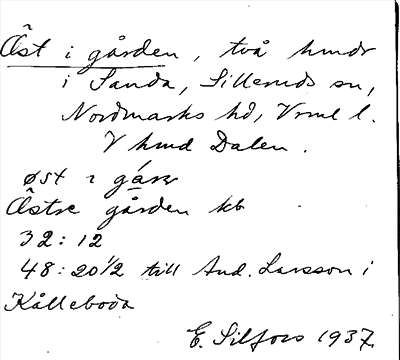 Öst i gården, två hmdr
i Sanda, Silleruds sn,
Nordmarks hd, Vrml l.
V hmd Dalen.
øst i
Östre gården kb
32:12
48:20½ till And. Larsson i
Kålleboda
E. Silfors 1937.